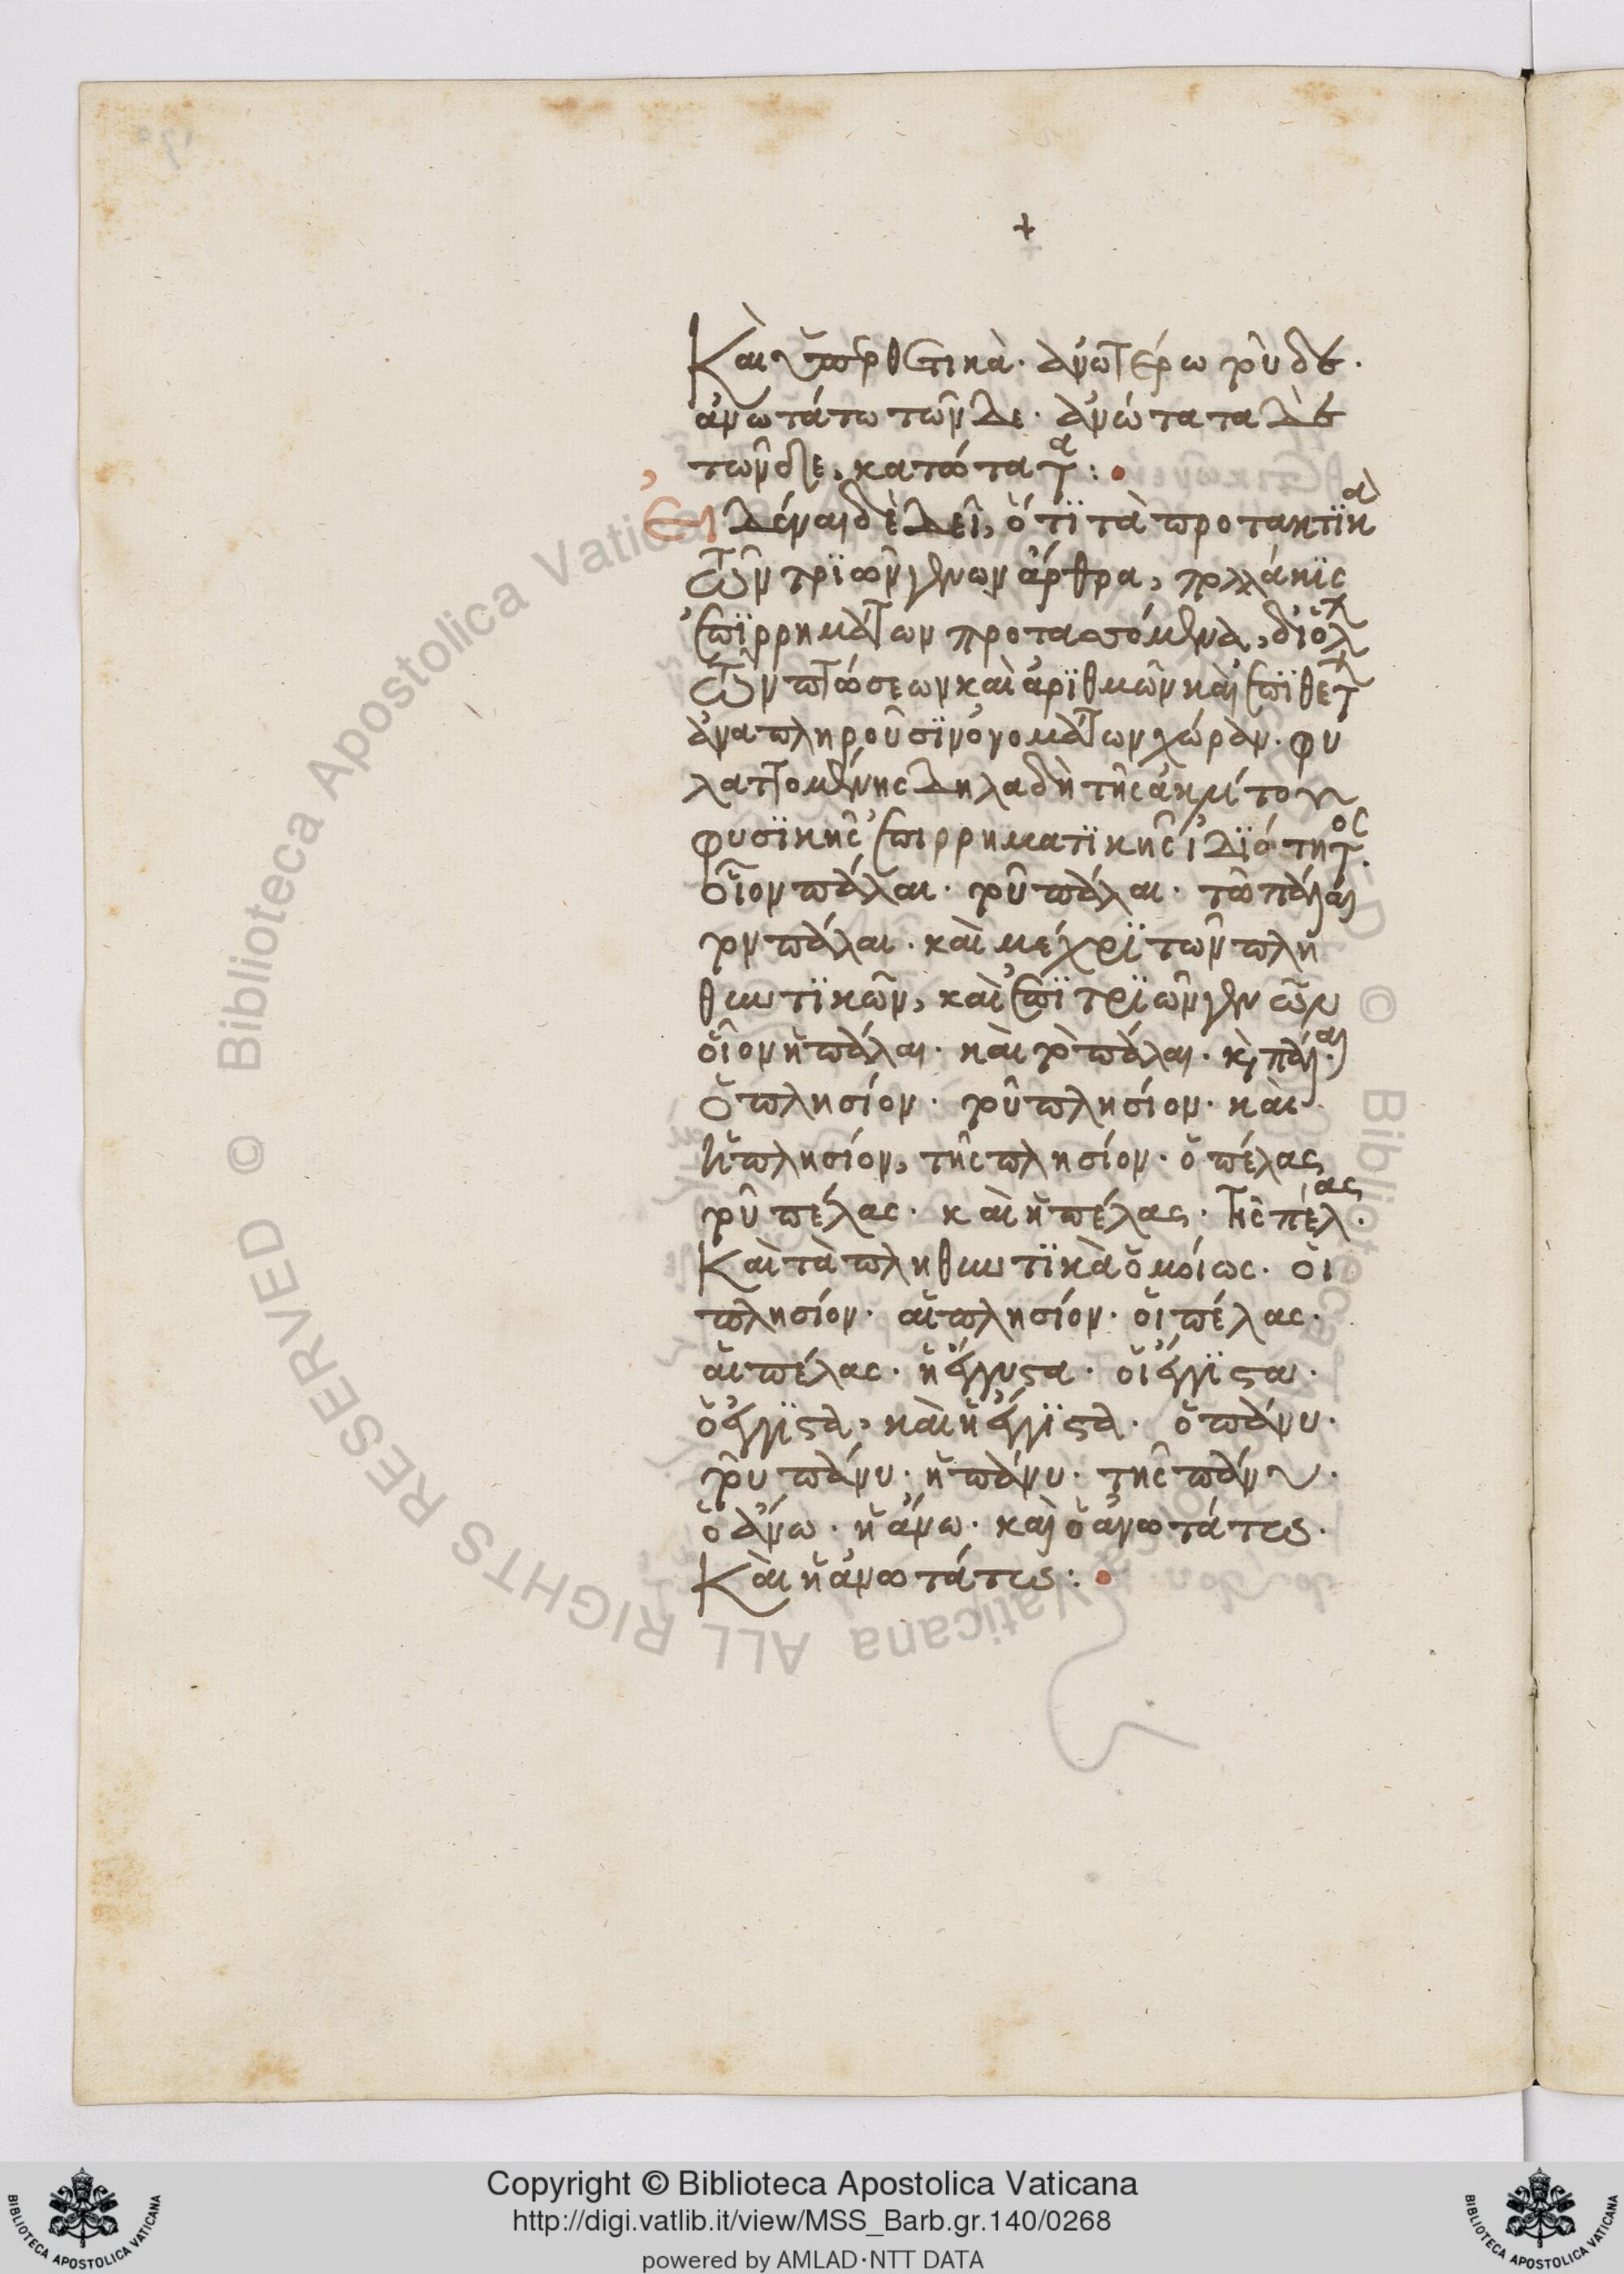 +
Καὶ ὑπερθετικὰ· ἀνωτέρω τοῦδε·
ἀνωτάτω τῶνδε· ἀνώτατα δὲ
τῶνδε, κατώτατα:
Εἰδέναι δὲ δεῖ, ὅτι τὰ προτακτικὰ
τῶν τριῶν γενῶν ἄρθρα, πολλάκις
ἐπιρρημάτων προτασσόμενα, διὸ
τῶν πτώσεων καὶ ἀριθμῶν καὶ ἐπιθετ
ἀναπληροῦσιν ὀνομάτων χώραν· φυ
λαττομένης δηλαδὴ τῆς ἀκινήτου
φυσικῆς ἐπιρρηματικῆς ἰδιότητος.
οἷον πάλαι· τοῦ πάλαι· τῶ πάλαι
τὸν πάλαι· καὶ μέχρι τῶν πλη
θυντικῶν, καὶ ἐπὶ τριῶν γενῶν
οἷον ἡ πάλαι· καὶ τὸ πάλαι· καὶ πάλαι·
ὁ πλησίον· τοῦ πλησίον· καὶ
ἡ πλησίον, τῆς πλησίον· ὁ πέλας
τοῦ πέλας· καὶ ἡ πέλας· τῆς πέλας·
Καὶ τὰ πληθυντικὰ ὁμοίως· οἱ
πλησίον· αἱ πλησίον· οἱ πέλας·
αἱ πέλας· ἡ ἔγγυστα· οἱ ἔγγιστα·
ὁ ἔγγιστα, καὶ ἡ ἔγγιστα· ὁ πάνυ·
τοῦ πάνυ· ἡ πάνυ· τῆς πάνυ·
ὁ ἄνω· ἡ ἄνω· καὶ ὁ ἀνωτάτω·
Καὶ ἡ ἀνωτάτω:
© Biblioteca Apostolica Vaticana ALL RIGHTS RESERVED
Copyright © Biblioteca Apostolica Vaticana
http://digi.vatlib.it/view/MSS_Barb.gr.140/0268
powered by AMLAD·NTT DATA
BIBLIOTECA APOSTOLICA VATICANA
BIBLIOTECA APOSTOLICA VATICANA